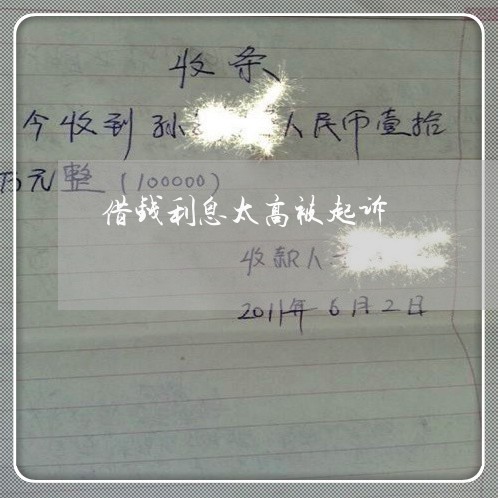 收条
今收到孙 人民币壹拾
万元整(100000)
借钱利息太高被起诉
收款人
2011年6月2日